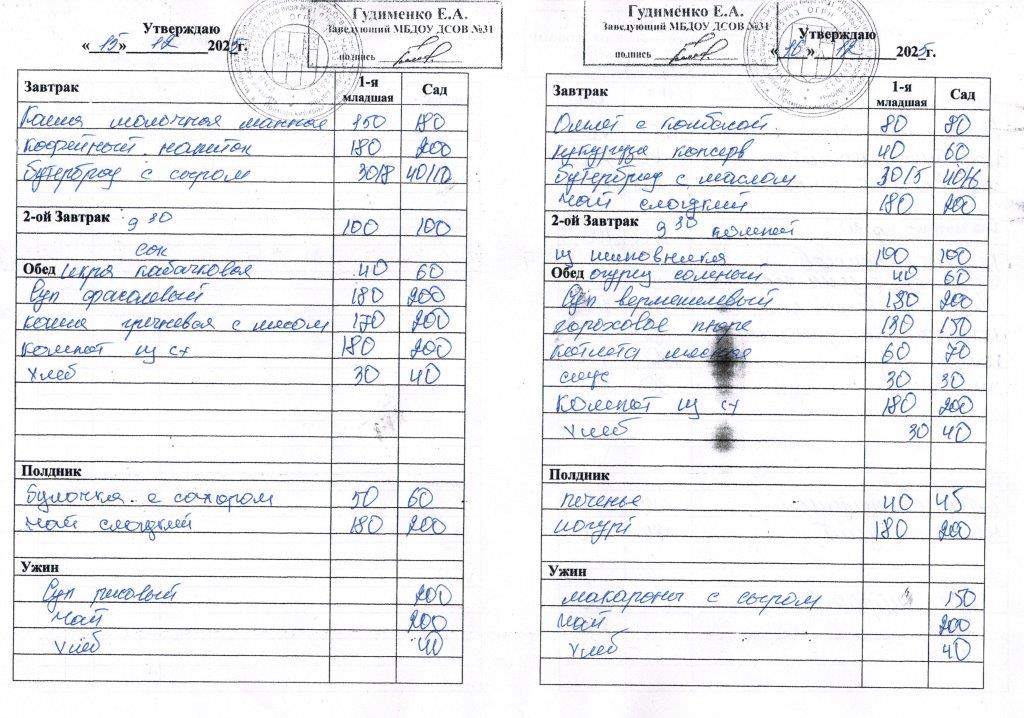 Гудименко Е.А.
Заведующий МБДОУ ДСОВ №31
подпись
Утверждаю
« 15 » 12 2025г.
Завтрак 1-я младшая Сад
Каша молочная манная 150 180
Кофейный напиток 180 200
бутерброд с сыром 30/8 40/10
2-ой Завтрак 9 30 100 100
сок
Обед икра кабачковая 40 60
Суп фасолевый 180 200
каша гречневая с мясом 170 200
компот из с/х 180 200
хлеб 30 40
Полдник
булочка с сахаром 50 60
чай сладкий 180 200
Ужин
Суп рисовый 200
чай 200
хлеб 40
Гудименко Е.А.
Заведующий МБДОУ ДСОВ №31
подпись
Утверждаю
« 16 » 12 2025г.
Завтрак 1-я младшая Сад
Омлет с колбасой 80 80
кукуруза консерв 40 60
бутерброд с маслом 30/5 40/6
чай сладкий 180 200
2-ой Завтрак 9 30 компот
из шиповника 100 100
Обед огурец соленый 40 60
Суп вермишелевый 180 200
гороховое пюре 130 150
котлета мясная 60 70
соус 30 30
Компот из с/х 180 200
хлеб 30 40
Полдник
печенье 40 45
йогурт 180 200
Ужин
макароны с сыром 150
чай 200
хлеб 40